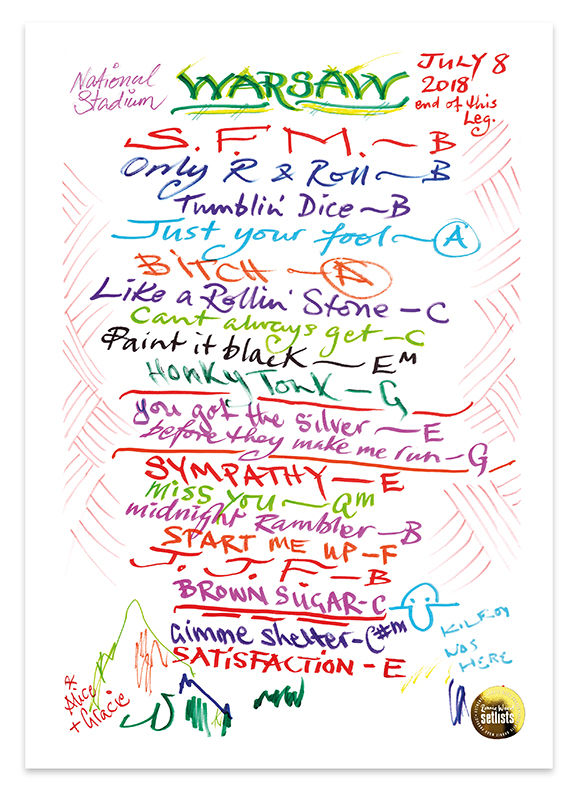 National
Stadium
WARSAW
JULY 8
2018
end of this
Leg.
S.F.M. ~ B
Only R & Roll ~ B
Tumblin' Dice ~ B
Just your fool ~ A
BiTCH ~ A
Like a Rollin' Stone - C
Cant always get - C
Paint it black — EM
HONKY TONK - G
you got the silver - E
before they make me run - G
SYMPATHY — E
miss you ~ am
midnight Rambler - B
START ME UP - F
J. J. F. - B
BROWN SUGAR - C
Gimme shelter - C#m
SATiSFACTiON - E
KILROY
WAS
HERE
& Alice
+ Gracie
Ronnie Wood
setlists